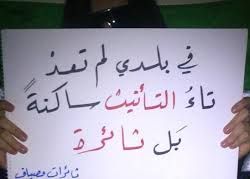 في بلدي لم تعدْ
تاءُ التأنيث ساكنةً
بَل ثائرة
ثائرات مصياف